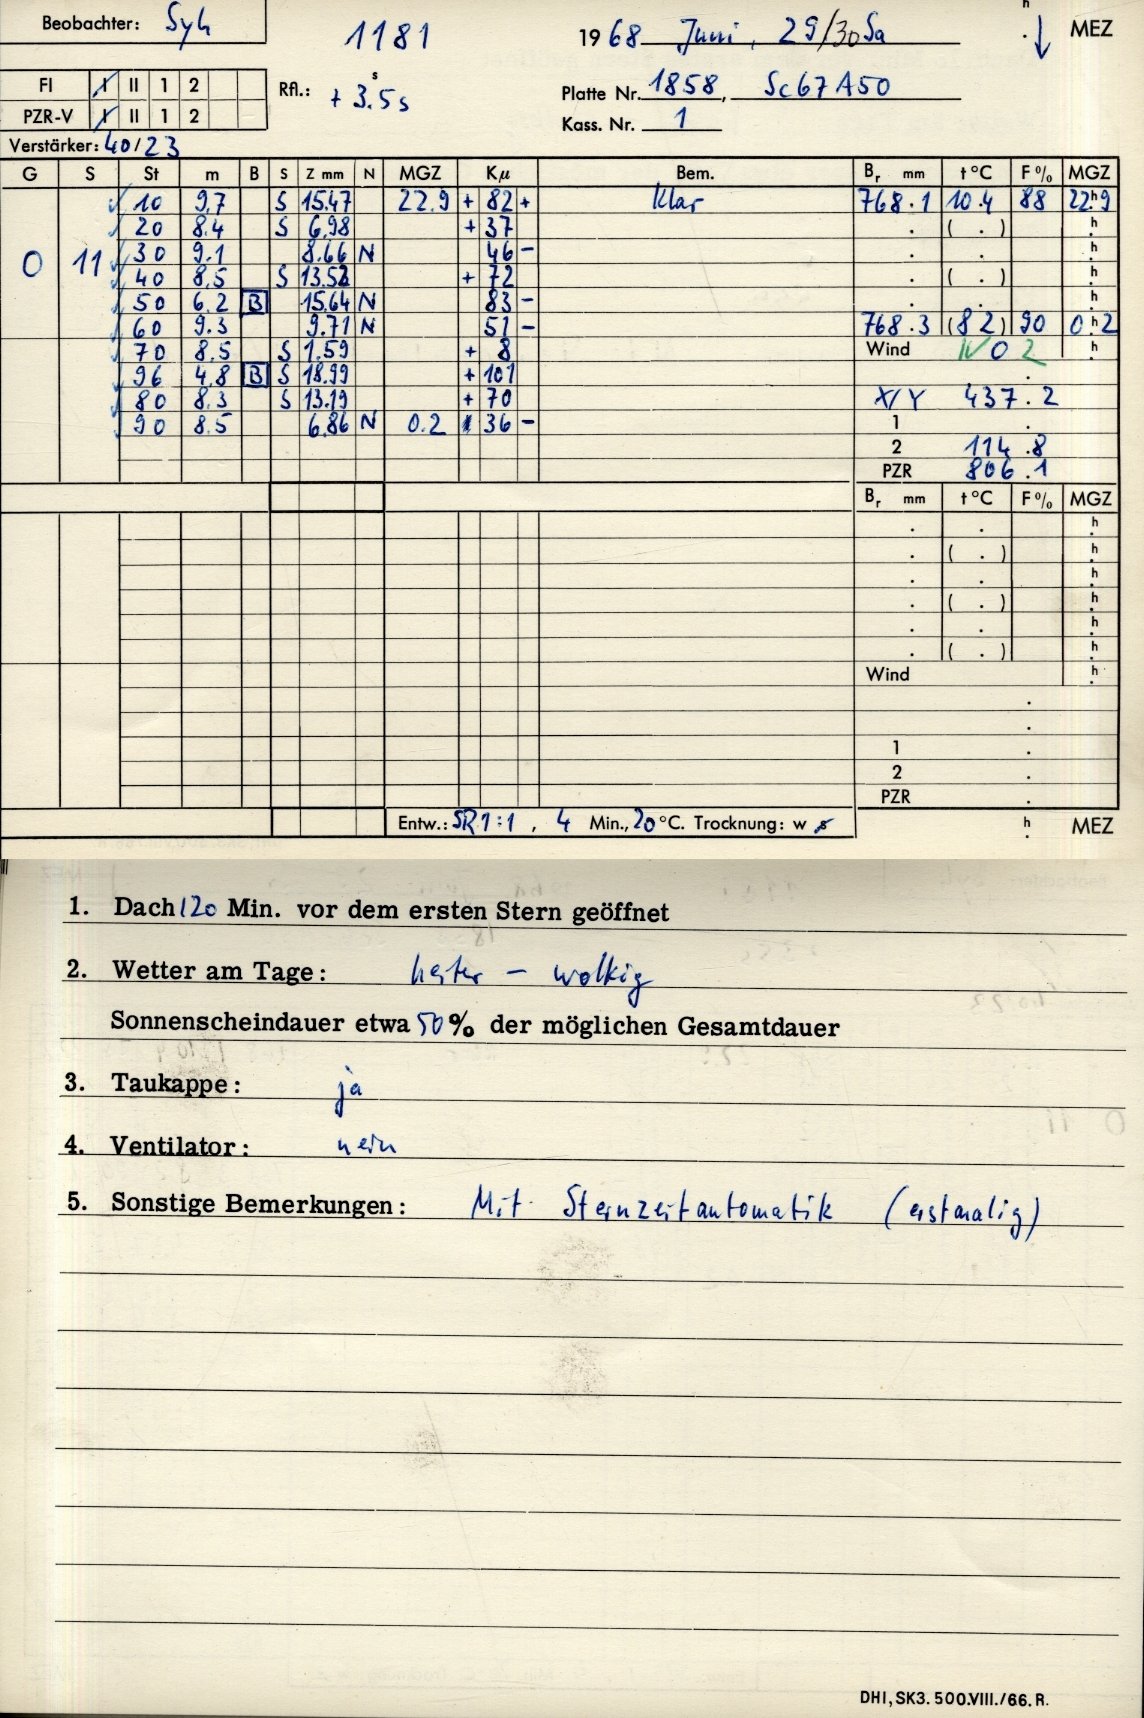 Beobachter: Syh
1181
1968 Juni, 29/30 Sa
h . ↓ MEZ
FI I II 1 2
PZR-V I II 1 2
Rfl.: + 3.5s s
Platte Nr. 1858, Sc67A50
Kass. Nr. 1
Verstärker: 40/23
G S St m B S Z mm N MGZ Kμ Bem. Br mm t °C F % MGZ
10 9,7 S 15.47 22.9 + 82 + Klar 768.1 10.4 88 22h9
20 8.4 S 6,98 + 37 . ( . ) h
0 11 30 9.1 8.66 N 46 – . . h
40 8,5 S 13.52 + 72 . ( . ) h
50 6,2 B 15.64 N 83 – . . h
60 9.3 9.71 N 51 – 768.3 (82) 90 0h2
70 8.5 S 1.59 + 8 Wind W 0 2 h
96 4,8 B S 18.99 + 101 .
80 8,3 S 13.19 + 70 X/Y 437.2
90 8.5 6.86 N 0.2 36 – 1 .
2 114.8
PZR 806.1
Br mm t °C F % MGZ
. . h
. ( . ) h
. . h
. ( . ) h
. . h
. ( . ) h
Wind h
.
.
1 .
2 .
PZR .
Entw.: SR1:1, 4 Min., 20 °C. Trocknung: w s
h . MEZ
1. Dach 120 Min. vor dem ersten Stern geöffnet
2. Wetter am Tage: heiter – wolkig
Sonnenscheindauer etwa 50% der möglichen Gesamtdauer
3. Taukappe: ja
4. Ventilator: nein
5. Sonstige Bemerkungen: Mit Sternzeitautomatik (erstmalig)
DHI, SK3. 500.VIII./66. R.